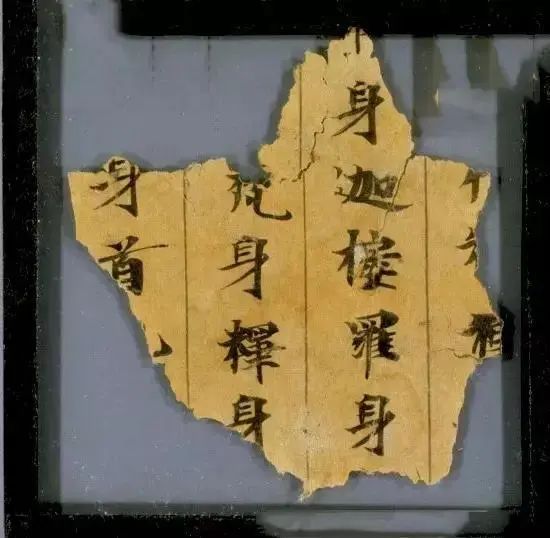 身迦樓羅身
梵身釋身
身首